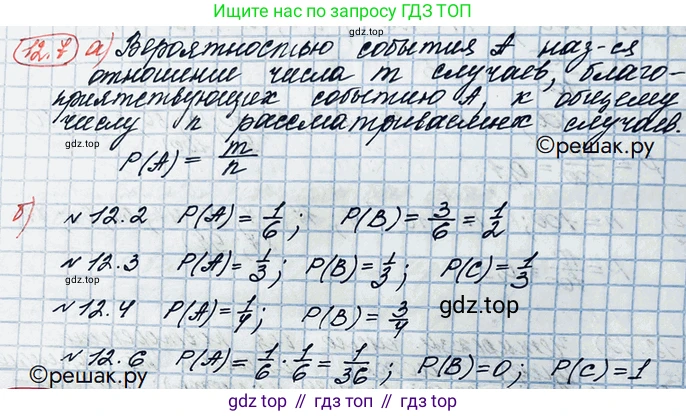 Ищите нас по запросу ГДЗ ТОП
12.7 а) Вероятностью события А наз-ся
отношение числа m случаев, благо-
приятствующих событию А, к общему
числу n рассматриваемых случаев.
gdz.top
gdz.top
P(A) = m/n
©reшак.ру
б)
№12.2 P(A)=1/6; P(B)=3/6=1/2
№12.3 P(A)=1/3; P(B)=1/3; P(C)=1/3
gdz.top
№12.4 P(A)=1/4; P(B)=3/4
gdz.top
№12.6 P(A)=1/6·1/6=1/36; P(B)=0; P(C)=1
©решак.ру
gdz.top // гдз.топ // гдз топ